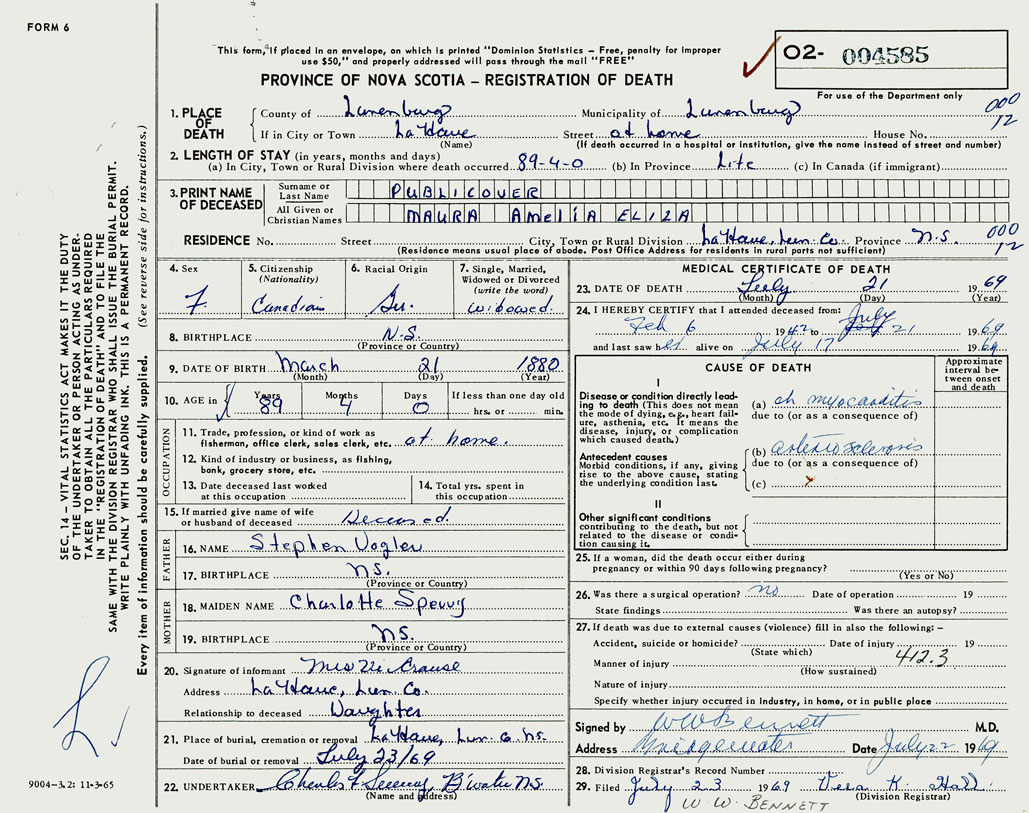 FORM 6
This form, if placed in an envelope, on which is printed "Dominion Statistics – Free, penalty for improper
use $50," and properly addressed will pass through the mail "FREE"
PROVINCE OF NOVA SCOTIA – REGISTRATION OF DEATH
02- 004585
For use of the Department only
000
12
1. PLACE OF DEATH
County of Lunenburg Municipality of Lunenburg
If in City or Town LaHave Street at home House No.
(Name) (If death occurred in a hospital or institution, give the name instead of street and number)
2. LENGTH OF STAY (in years, months and days)
(a) In City, Town or Rural Division where death occurred 89-4-0 (b) In Province Life (c) In Canada (if immigrant)
3. PRINT NAME OF DECEASED
Surname or Last Name PUBLICOVER
All Given or Christian Names MAURA AmelIA ELIZA
RESIDENCE No. Street City, Town or Rural Division LaHave, Lun. Co. Province N.S.
000
12
(Residence means usual place of abode. Post Office Address for residents in rural parts not sufficient)
4. Sex
F.
5. Citizenship
(Nationality)
Canadian
6. Racial Origin
7. Single, Married,
Widowed or Divorced
(write the word)
widowed.
8. BIRTHPLACE N.S.
(Province or Country)
9. DATE OF BIRTH March 21 1880
(Month) (Day) (Year)
10. AGE in Years Months Days If less than one day old
89 4 0 hrs. or min.
OCCUPATION
11. Trade, profession, or kind of work as
fisherman, office clerk, sales clerk, etc. at home.
12. Kind of industry or business, as fishing,
bank, grocery store, etc.
13. Date deceased last worked
at this occupation
14. Total yrs. spent in
this occupation
15. If married give name of wife
or husband of deceased Deceased.
FATHER
16. NAME Stephen Vogler
17. BIRTHPLACE N.S.
(Province or Country)
MOTHER
18. MAIDEN NAME Charlotte Sperry
19. BIRTHPLACE N.S.
(Province or Country)
20. Signature of informant Mrs Crouse
Address LaHave, Lun. Co.
Relationship to deceased Daughter
21. Place of burial, cremation or removal LaHave, Lun. Co NS.
Date of burial or removal July 23/69
22. UNDERTAKER Charles F Sweeny B'water N.S.
(Name and address)
MEDICAL CERTIFICATE OF DEATH
23. DATE OF DEATH July 21 1969
(Month) (Day) (Year)
24. I HEREBY CERTIFY that I attended deceased from:
Feb 6 1942 to July 21 1969
and last saw her alive on July 17 1969
CAUSE OF DEATH
Approximate
interval be-
tween onset
and death
I
Disease or condition directly lead-
ing to death (This does not mean
the mode of dying, e.g., heart fail-
ure, asthenia, etc. It means the
disease, injury, or complication
which caused death.)
(a) ch myocarditis
due to (or as a consequence of)
Antecedent causes
Morbid conditions, if any, giving
rise to the above cause, stating
the underlying condition last.
(b) arteriosclerosis
due to (or as a consequence of)
(c)
II
Other significant conditions
contributing to the death, but not
related to the disease or condi-
tion causing it.
25. If a woman, did the death occur either during
pregnancy or within 90 days following pregnancy?
(Yes or No)
26. Was there a surgical operation? no Date of operation 19
State findings Was there an autopsy?
27. If death was due to external causes (violence) fill in also the following: –
Accident, suicide or homicide? Date of injury 19
(State which) 412.3
Manner of injury
(How sustained)
Nature of injury
Specify whether injury occurred in Industry, in home, or in public place
Signed by WW Bennett M.D.
Address Bridgewater Date July 22 1969
28. Division Registrar's Record Number
29. Filed July 23 1969 Vera K. Hall
(Division Registrar)
W. W. BENNETT
SEC. 14 – VITAL STATISTICS ACT MAKES IT THE DUTY
OF THE UNDERTAKER OR PERSON ACTING AS UNDER-
TAKER TO OBTAIN ALL THE PARTICULARS REQUIRED
IN THE "REGISTRATION OF DEATH" AND TO FILE THE
SAME WITH THE DIVISION REGISTRAR WHO SHALL ISSUE THE BURIAL PERMIT.
WRITE PLAINLY WITH UNFADING INK. THIS IS A PERMANENT RECORD.
Every item of information should be carefully supplied. (See reverse side for instructions.)
L
9004-3.2: 11-3-65